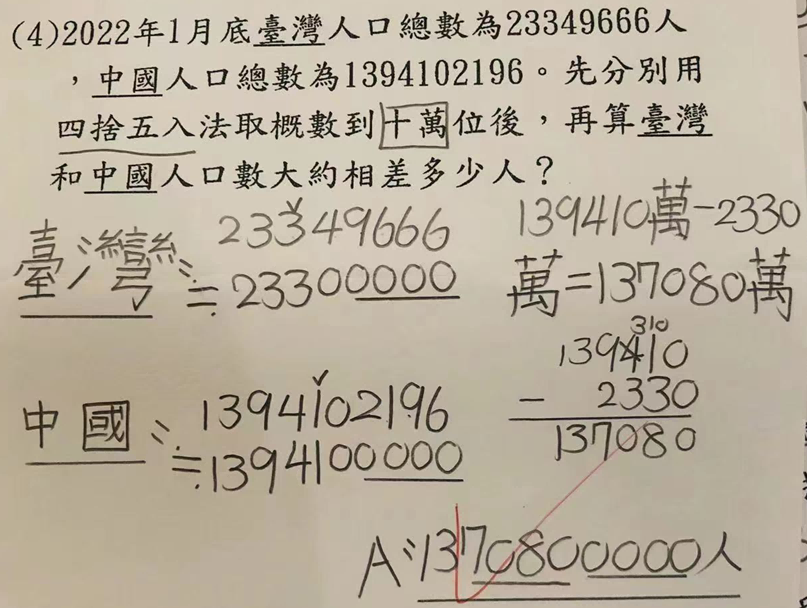 (4)2022年1月底臺灣人口總數為23349666人
，中國人口總數為1394102196。先分別用
四捨五入法取概數到十萬位後，再算臺灣
和中國人口數大約相差多少人？
臺灣：23349666
≒23300000
中國：1394102196
≒1394100000
139410萬-2330
萬=137080萬
310
139410
- 2330
137080
A：1370800000人